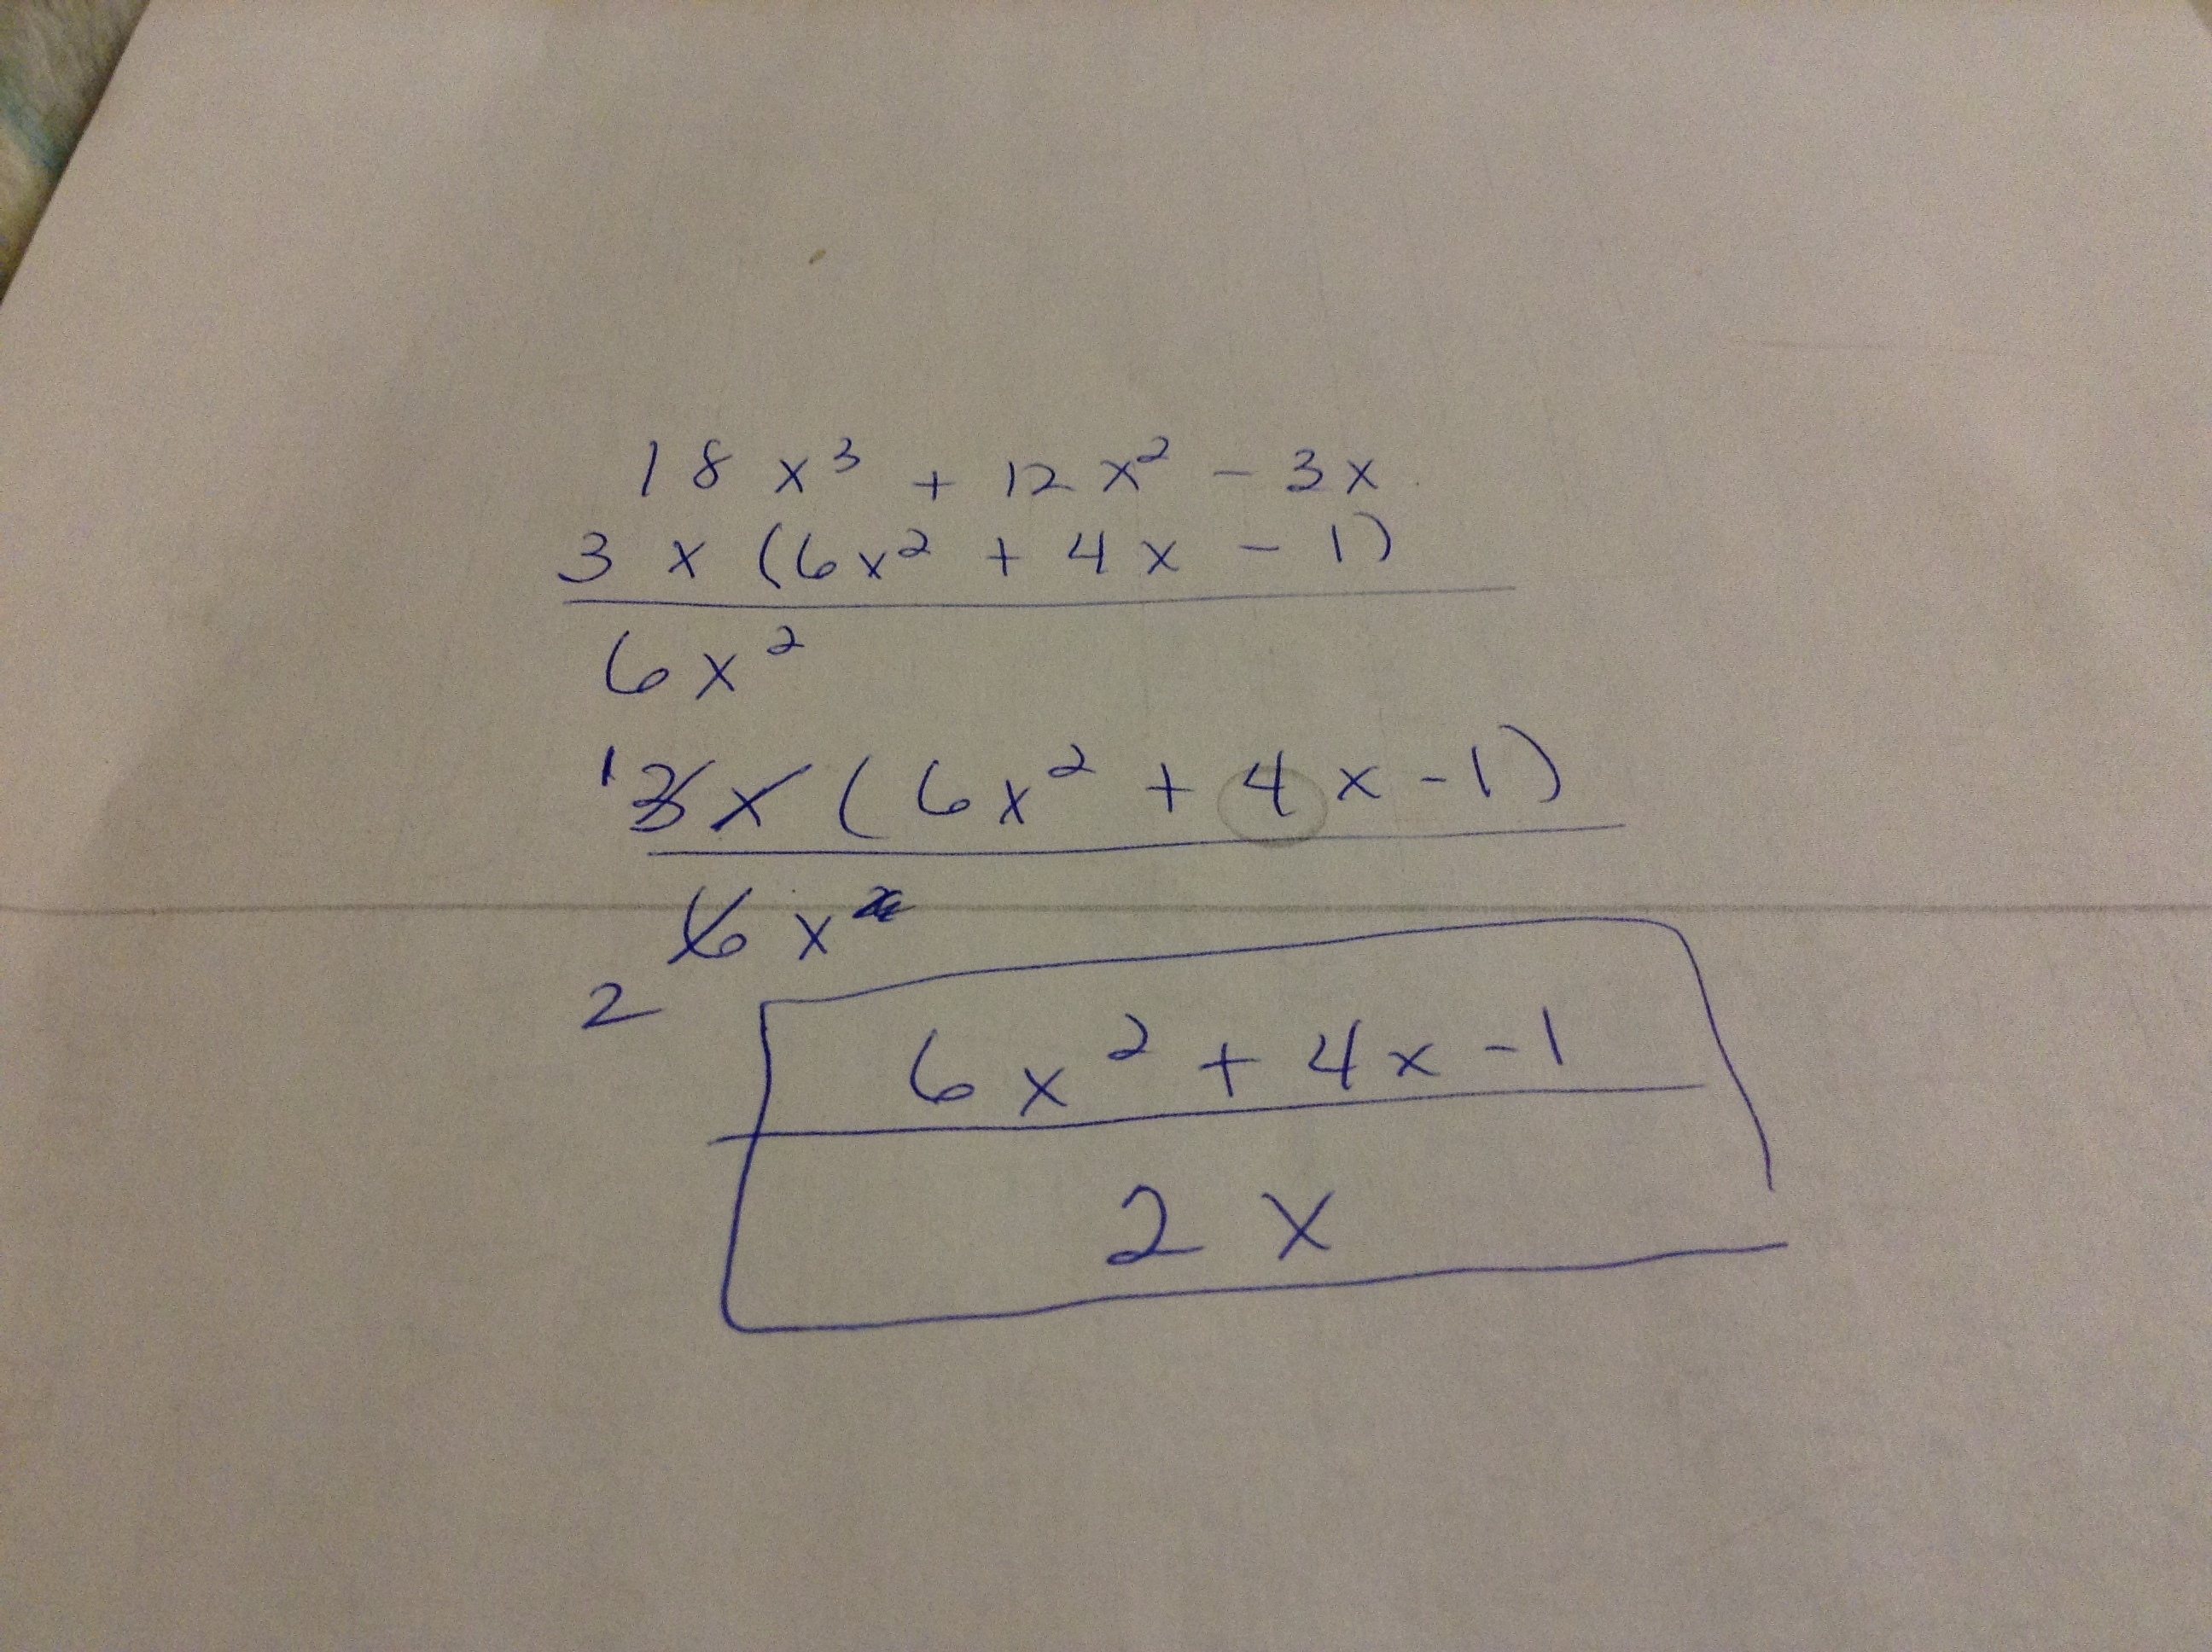 18x³ + 12x² - 3x
3x(6x² + 4x - 1)
6x²
1 3x(6x² + 4x - 1)
6x²
2
6x² + 4x - 1
2x